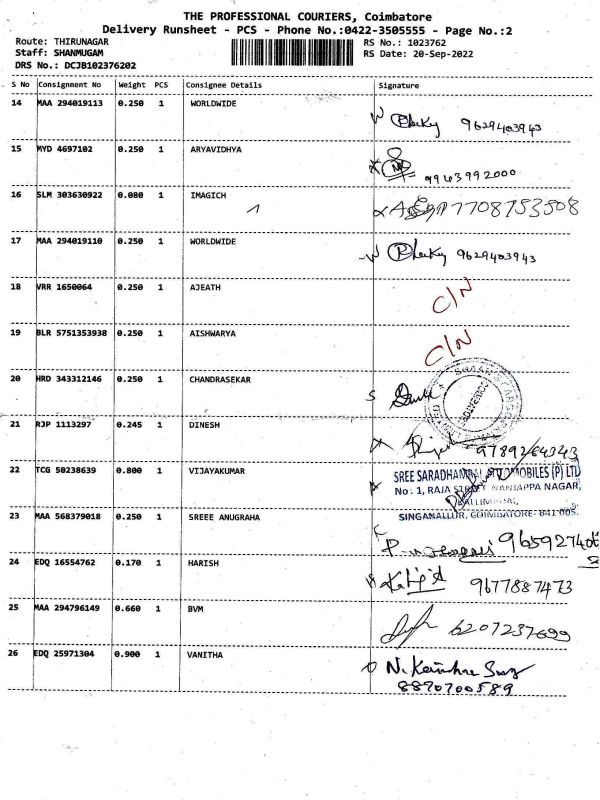 THE PROFESSIONAL COURIERS, Coimbatore
Delivery Runsheet - PCS - Phone No.:0422-3505555 - Page No.:2
Route: THIRUNAGAR
RS No.: 1023762
Staff: SHANMUGAM
RS Date: 20-Sep-2022
DRS No.: DCJB102376202
S No Consignment No Weight PCS Consignee Details Signature
14 MAA 294019113 0.250 1 WORLDWIDE
9629403943
15 MYD 4697102 0.250 1 ARYAVIDHYA
9943992000
16 SLM 303630922 0.080 1 IMAGICH
7708753508
17 MAA 294019110 0.250 1 WORLDWIDE
9629403943
18 VRR 1650064 0.250 1 AJEATH
C/N
19 BLR 5751353938 0.250 1 AISHWARYA
C/N
20 HRD 343312146 0.250 1 CHANDRASEKAR
21 RJP 1113297 0.245 1 DINESH
22 TCG 50238639 0.800 1 VIJAYAKUMAR
SREE SARADHAMBAL AUTOMOBILES (P) LTD
No: 1, RAJA STREET NANJAPPA NAGAR,
SINGANALLUR, COIMBATORE- 641 005.
23 MAA 568379018 0.250 1 SREEE ANUGRAHA
24 EDQ 16554762 0.170 1 HARISH
9677887473
25 MAA 294796149 0.660 1 BVM
6207237699
26 EDQ 25971304 0.900 1 VANITHA
8890700589